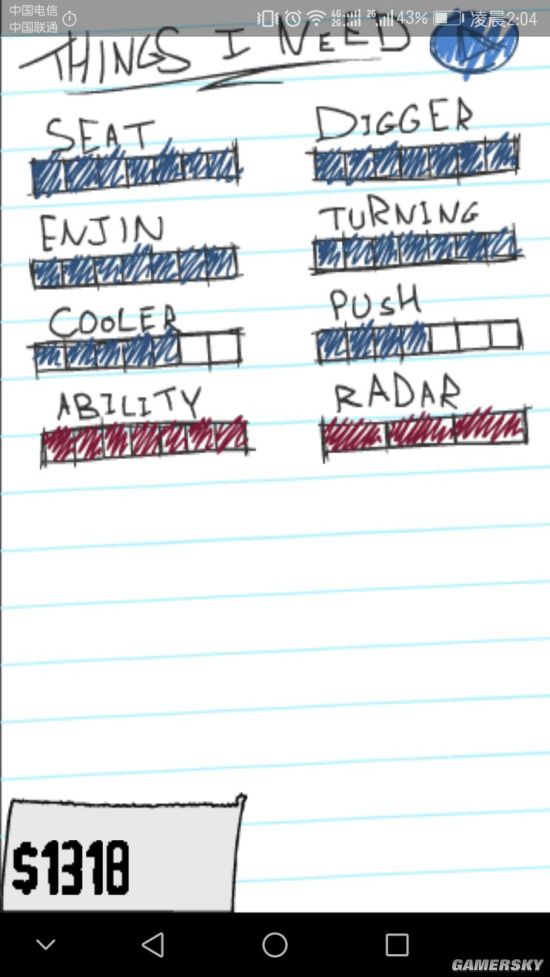 中国电信
中国联通
4G
2G
2G
43%
凌晨2:04
THINGS I NEED
SEAT
DIGGER
ENJIN
TURNING
COOLER
PUSH
ABILITY
RADAR
$1318
GAMERSKY